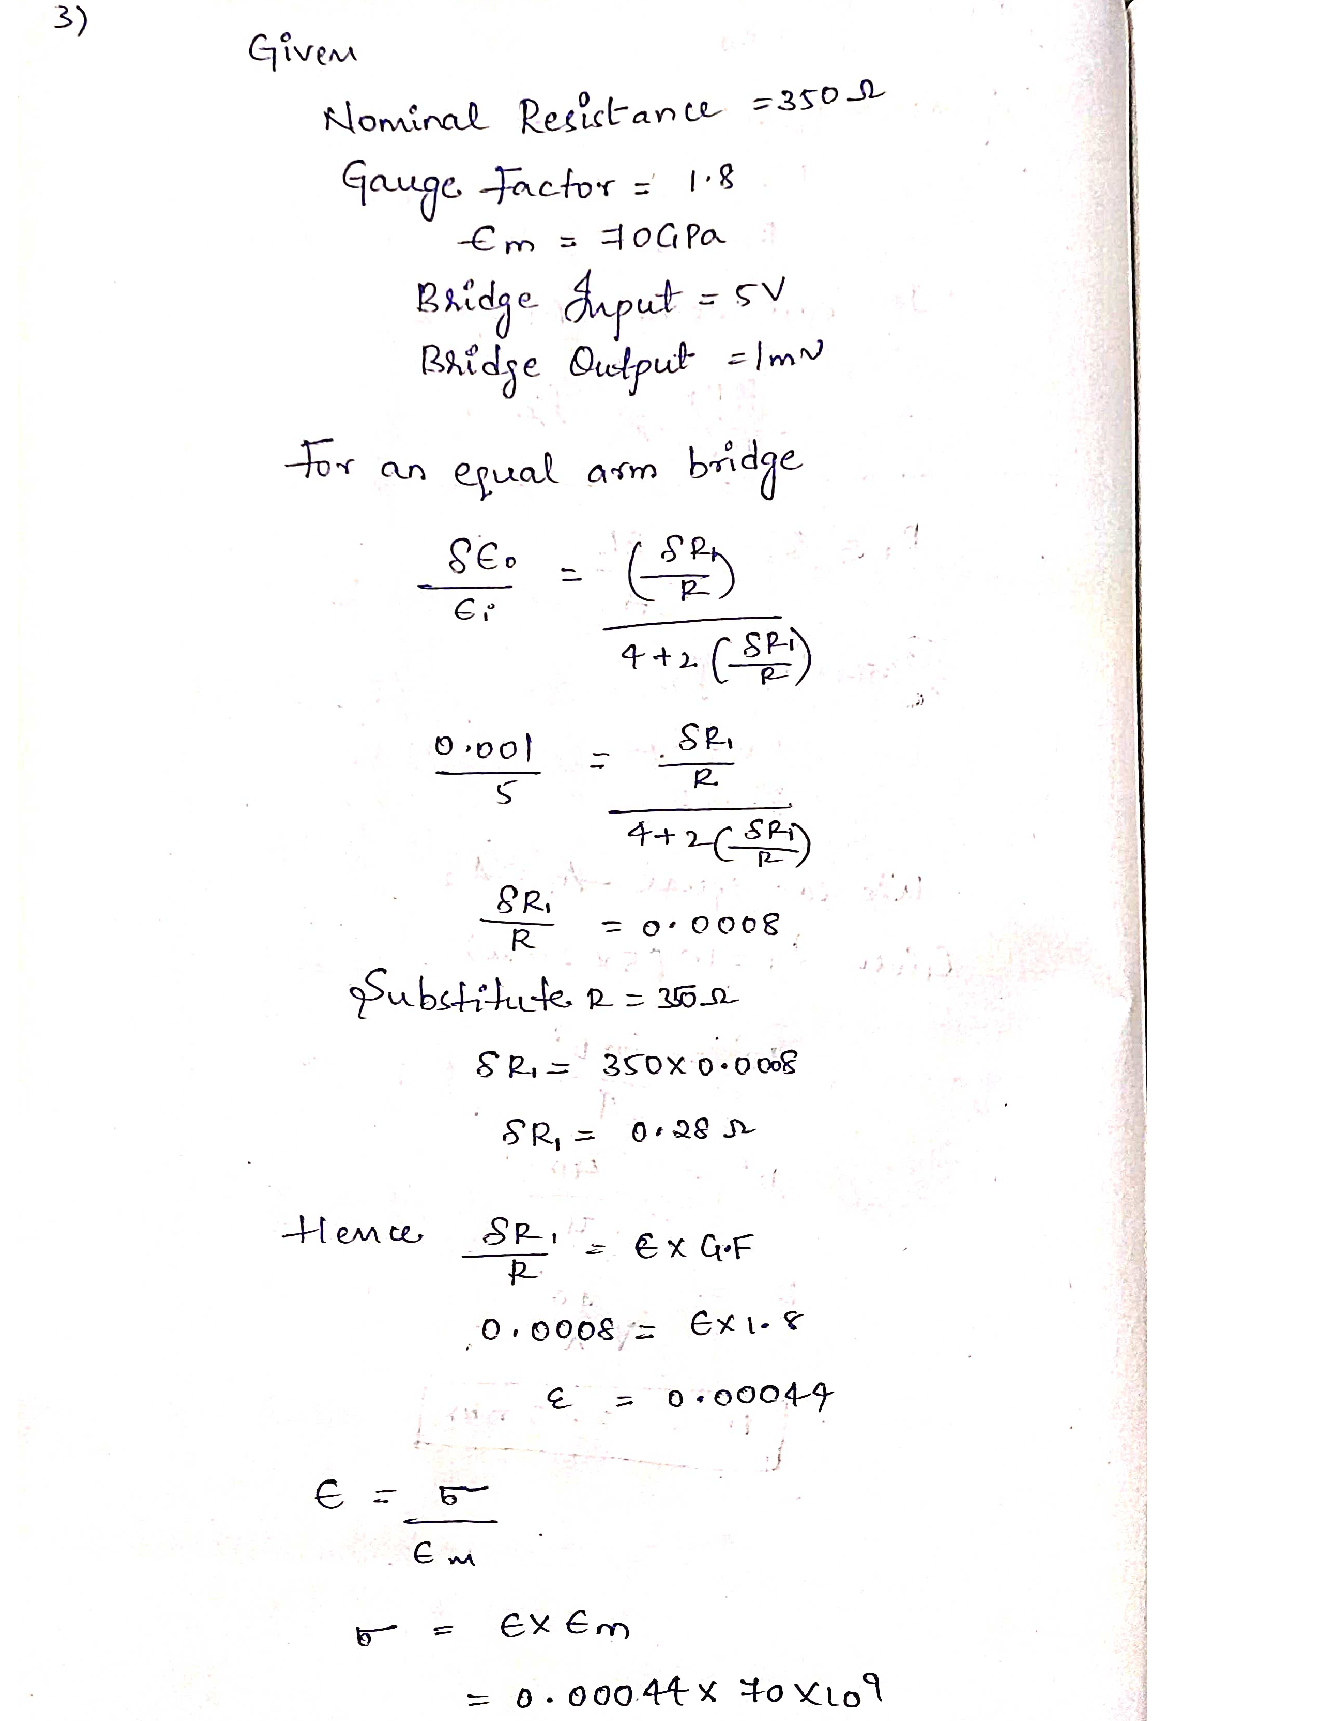 3)
Given
Nominal Resistance = 350 Ω
Gauge Factor = 1.8
Em = 70GPa
Bridge Input = 5V
Bridge Output = 1mv
For an equal arm bridge
δE0 / Ei = (δR1/R) / 4+2(δR1/R)
0.001 / 5 = δR1/R / 4+2(δR1/R)
δR1/R = 0.0008
Substitute R = 350 Ω
δR1 = 350 x 0.0008
δR1 = 0.28 Ω
Hence δR1/R = ϵ x G.F
0.0008 = ϵ x 1.8
ε = 0.00044
ϵ = σ / Em
σ = ϵ x Em
= 0.00044 x 70 x 10⁹